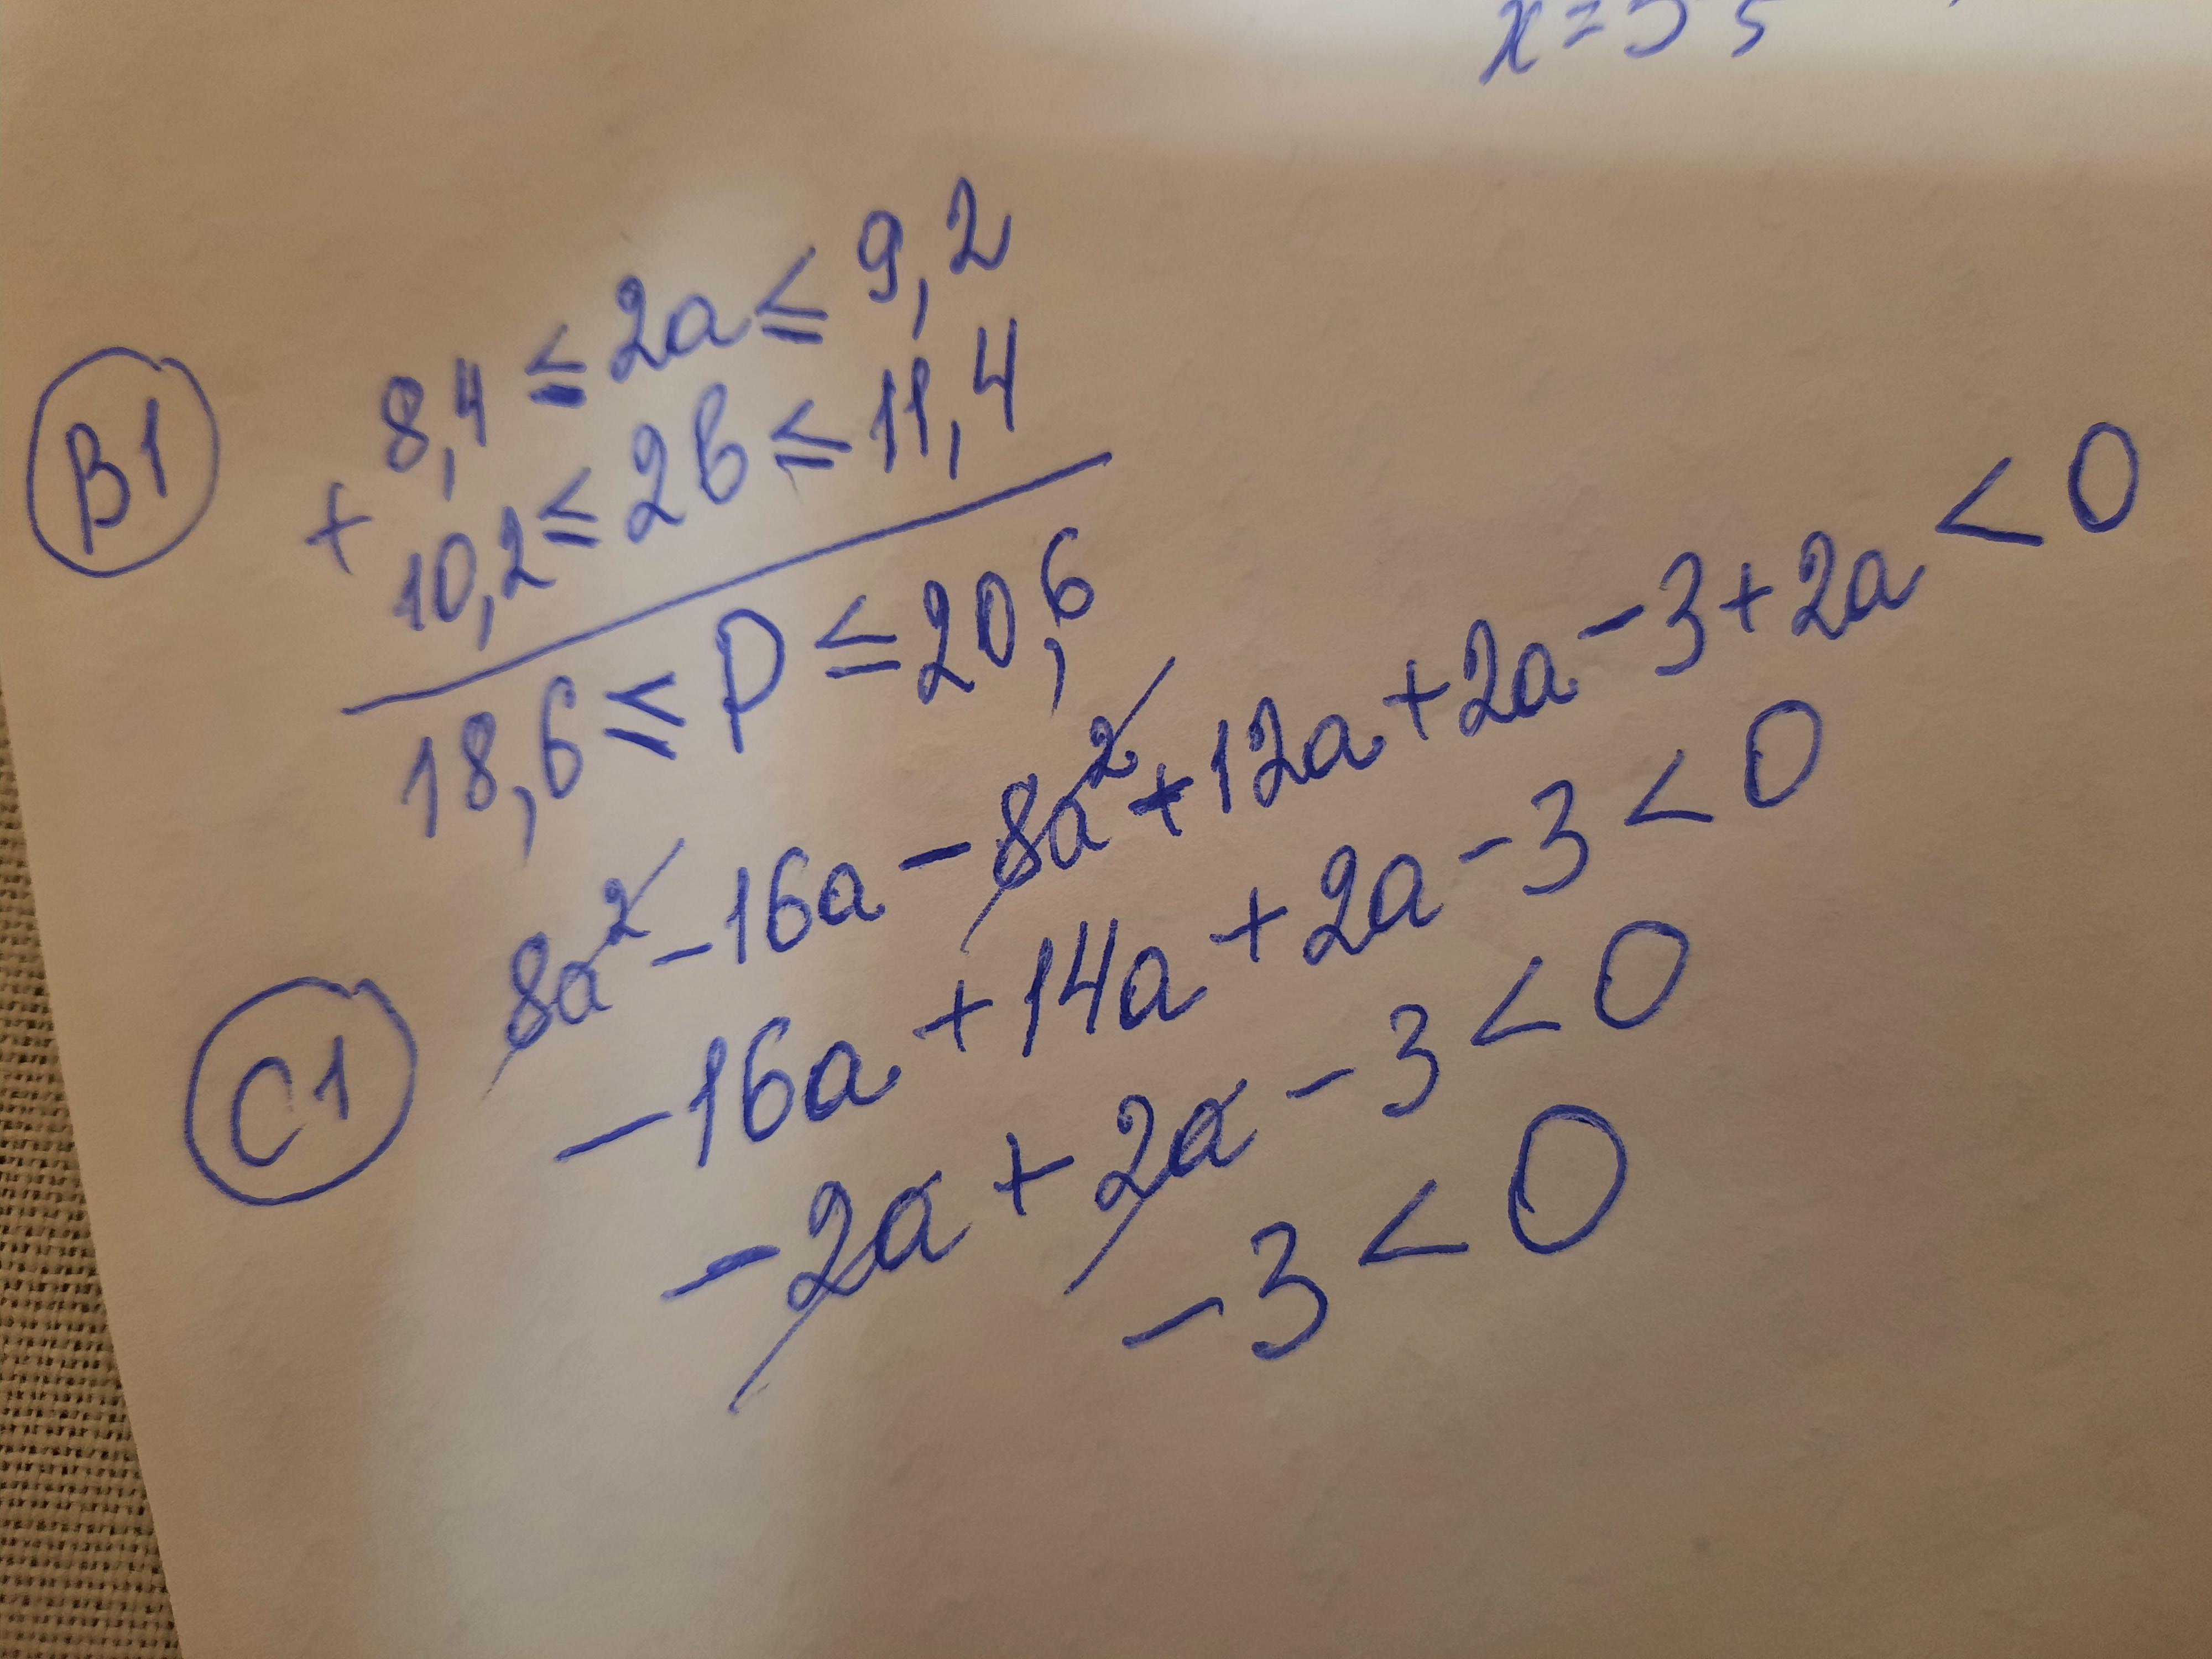 B1
8,4 ≤ 2a ≤ 9,2
+
10,2 ≤ 2b ≤ 11,4
18,6 ≤ P ≤ 20,6
C1
8a² - 16a - 8a² + 12a + 2a - 3 + 2a < 0
-16a + 14a + 2a - 3 < 0
-2a + 2a - 3 < 0
-3 < 0